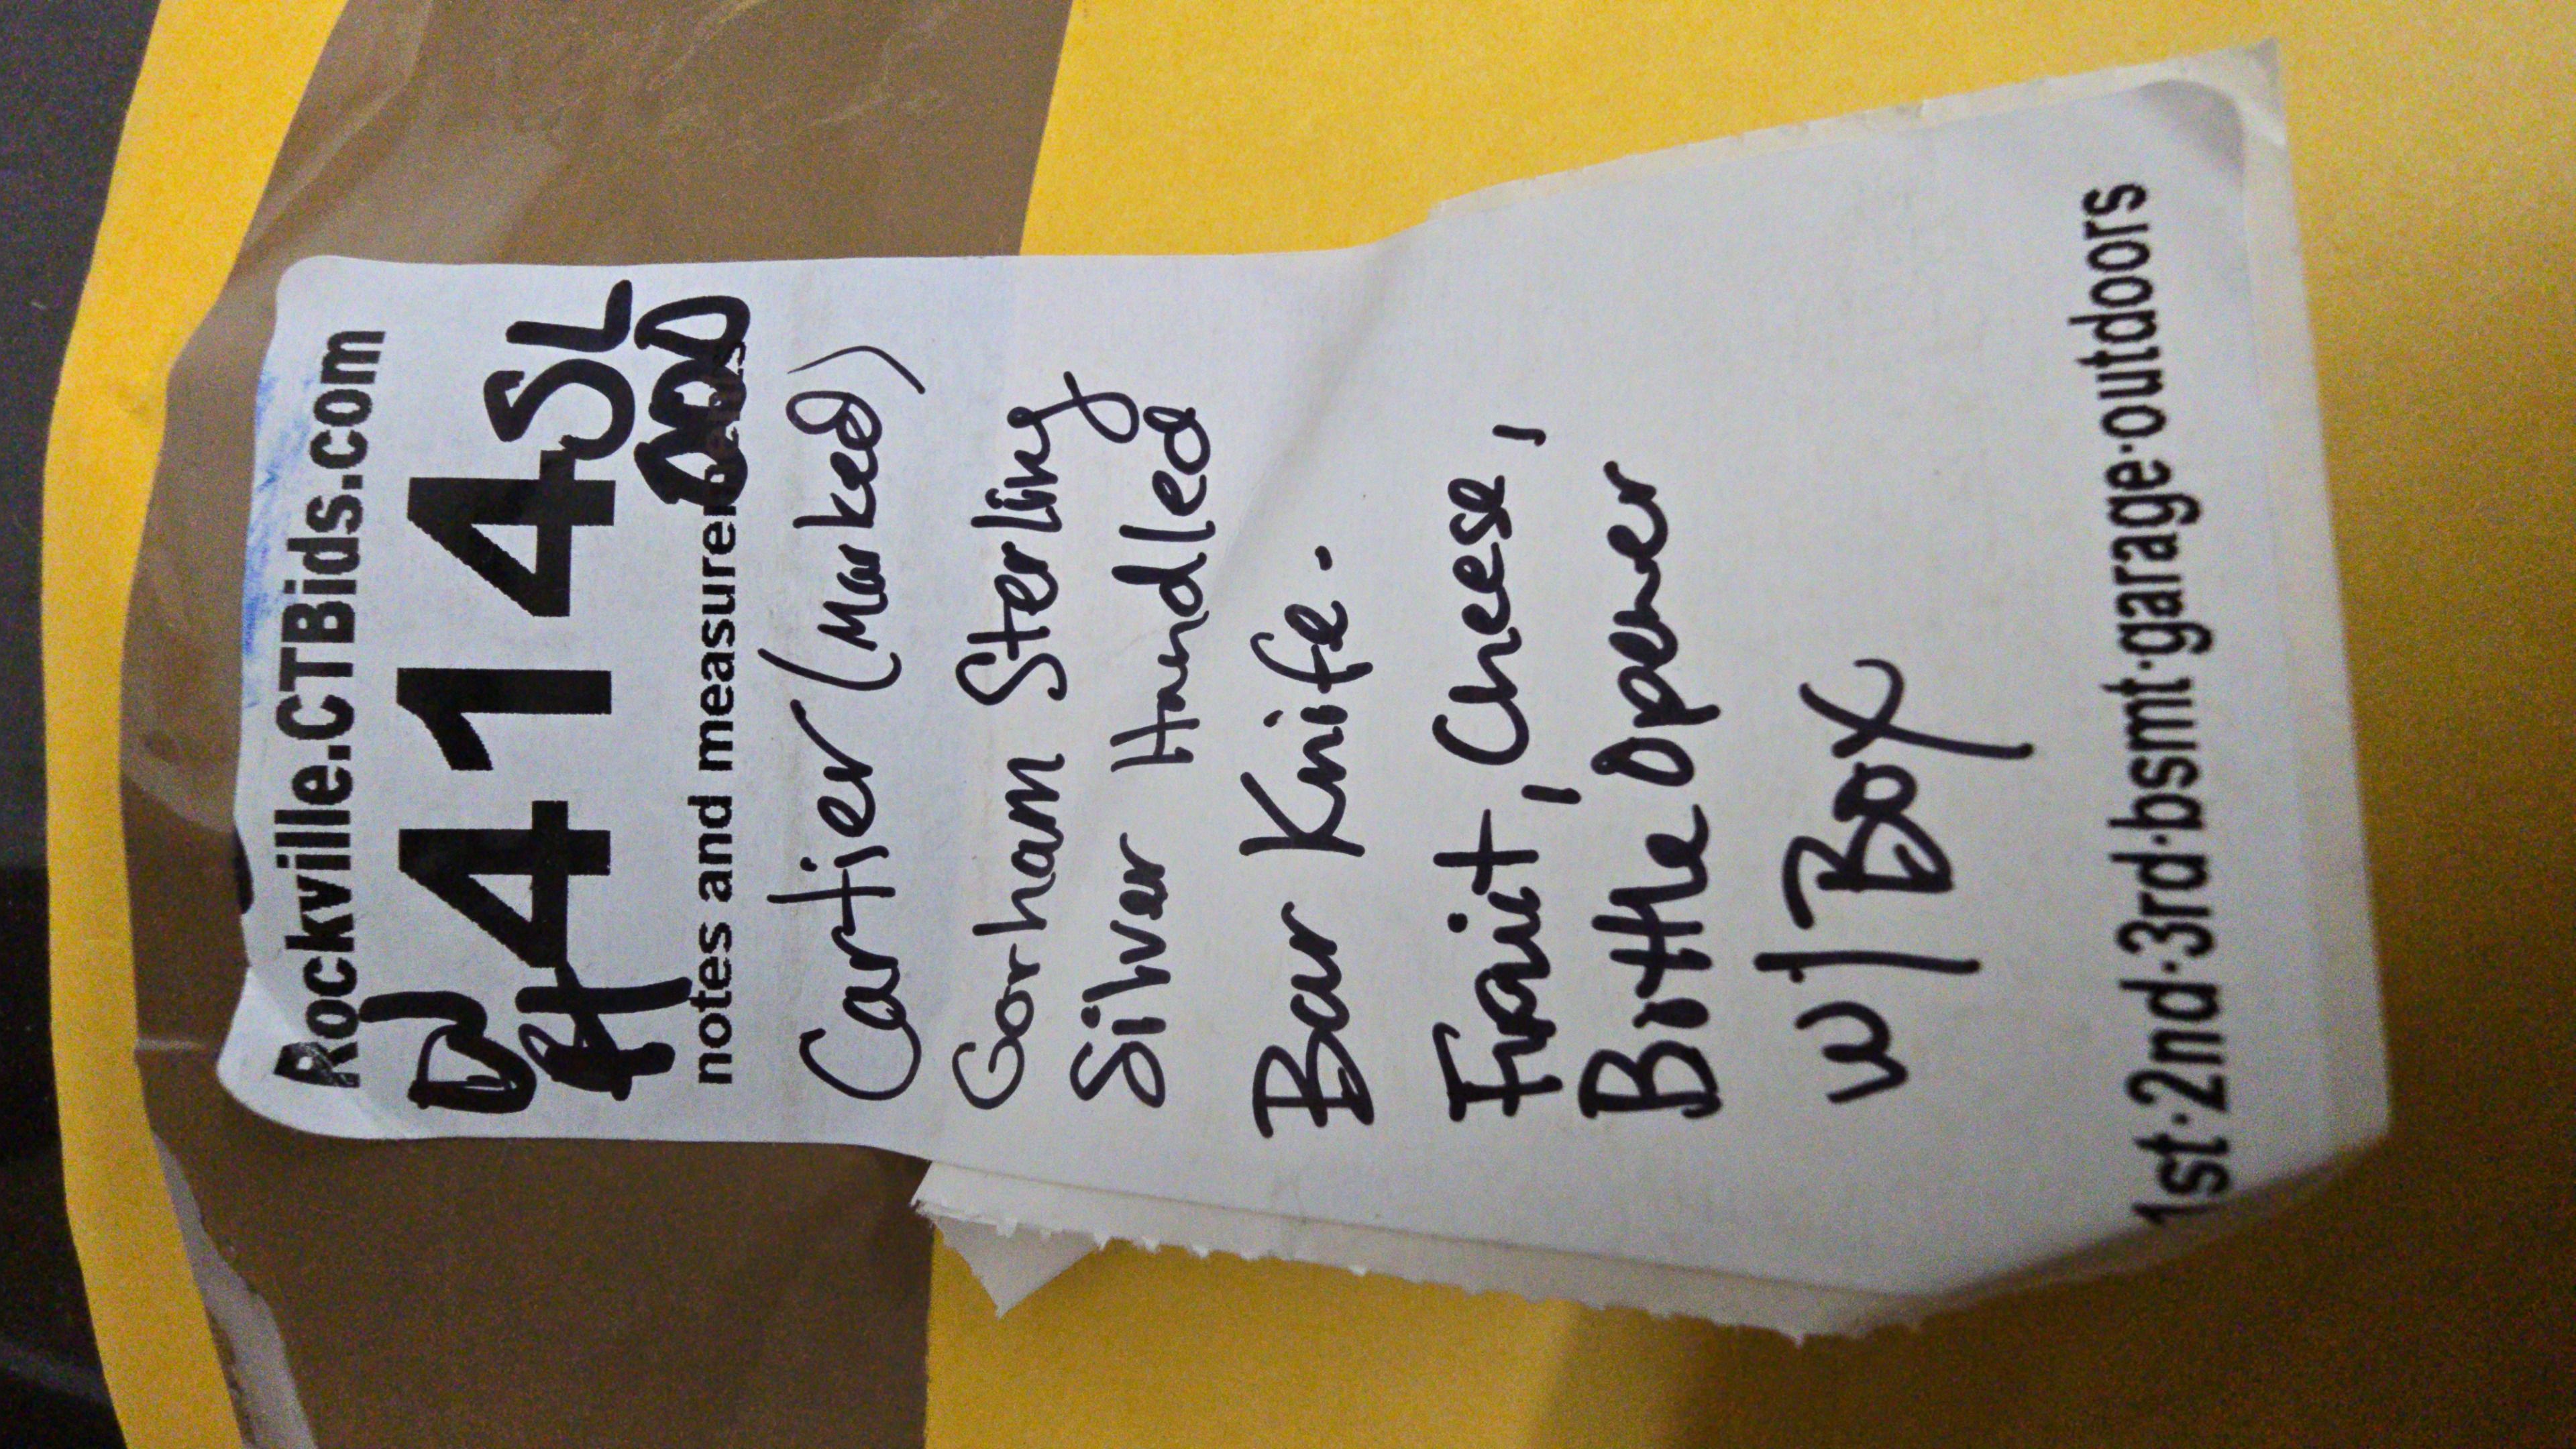 Rockville.CTBids.com
414 SL
notes and measurements
Cartier (Marked)
Gorham Sterling
Silver Handled
Bar Knife.
Fruit, Cheese,
Bottle Opener
w/ Box
1st·2nd·3rd·bsmt·garage·outdoors